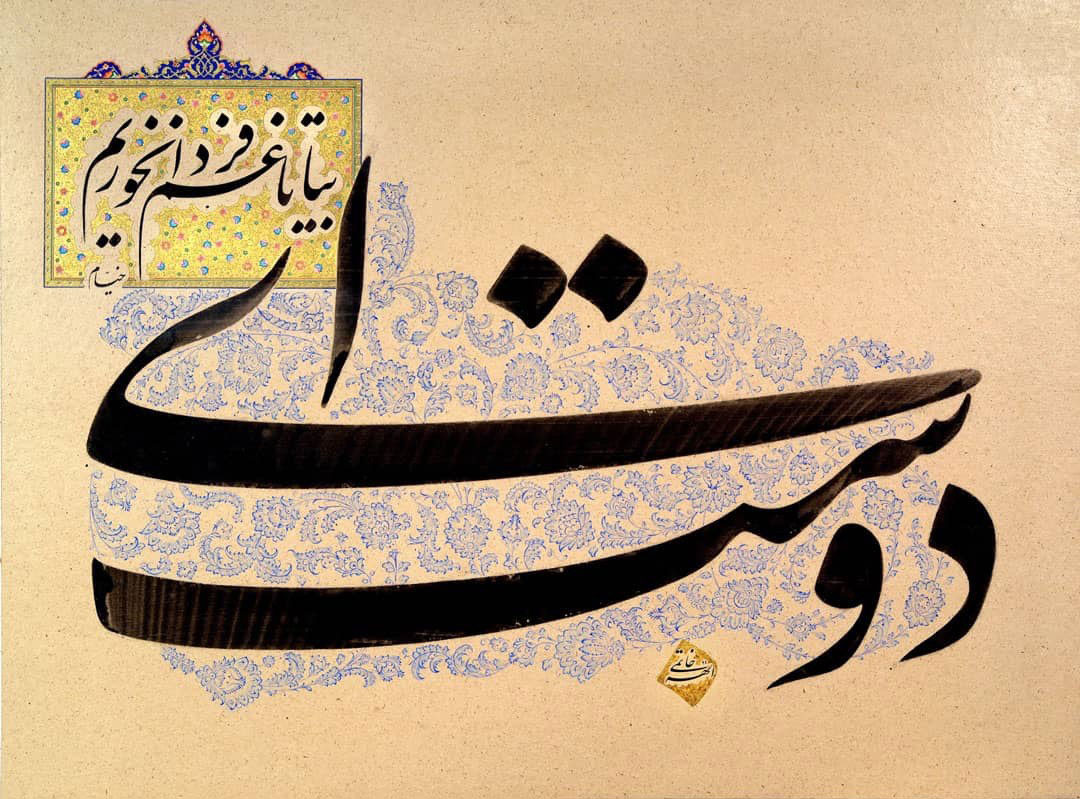 ای دوست
بیا تا غم فردا نخوریم
خیام
الهه خاتمی